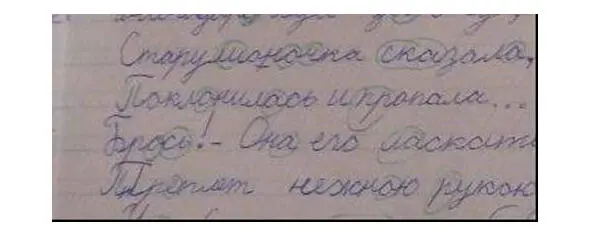 Старушоночка сказала,
Поклонилась и пропала...
Брось! - Она его ласкать
Треплет нежною рукою